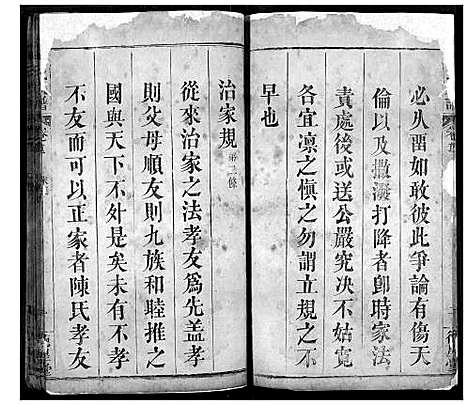 必从畱如敢彼此爭論有傷天
倫以及撒潑打降者卽時家法
責處後或送公嚴究决不姑寬
各宜凛之愼之勿謂立規之不
早也
治家規 第二條
從來治家之法孝友爲先蓋孝
則父母順友則九族和睦推之
國與天下不外是矣未有不孝
不友而可以正家者陳氏孝友